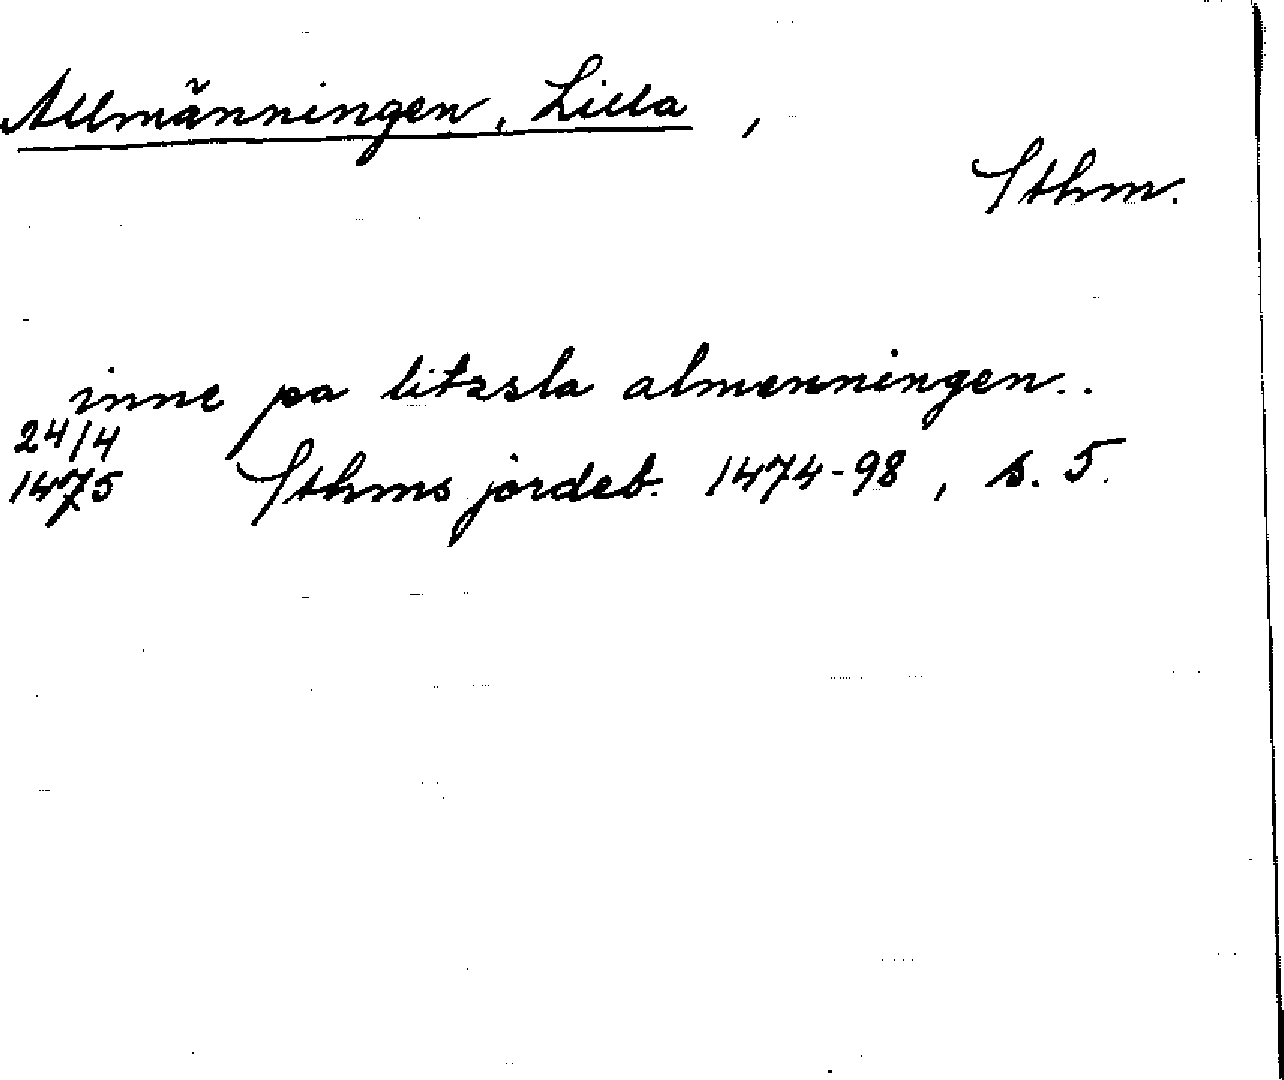 Allmänningen, Lilla,
Sthm.
inne pa litzsla almenningen..
24/4
1475 Sthms jordeb. 1474-98, s. 5.